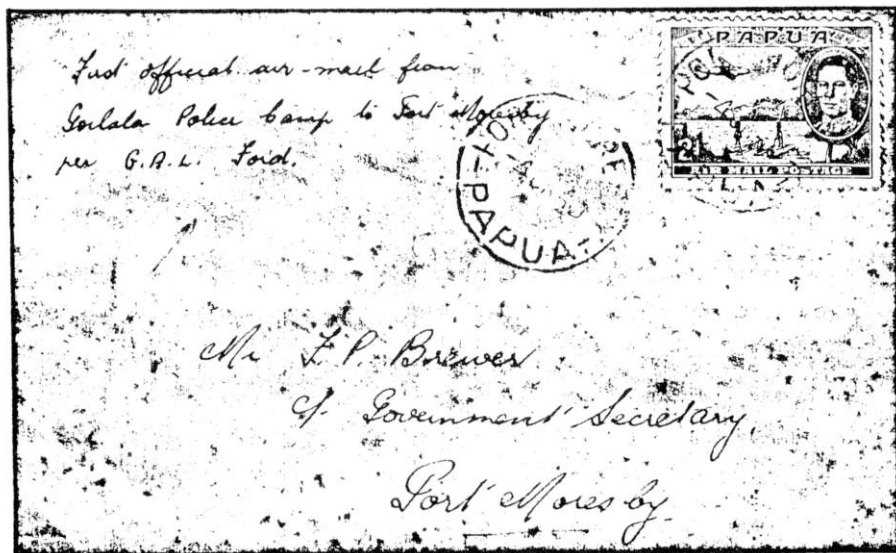 First official air-mail from
Goilala Police Camp to Port Moresby
per G.A.L. Ford.
PAPUA
AIR MAIL POSTAGE
PAPUA
Mr F.P. Brewer
c/. Government Secretary,
Port Moresby